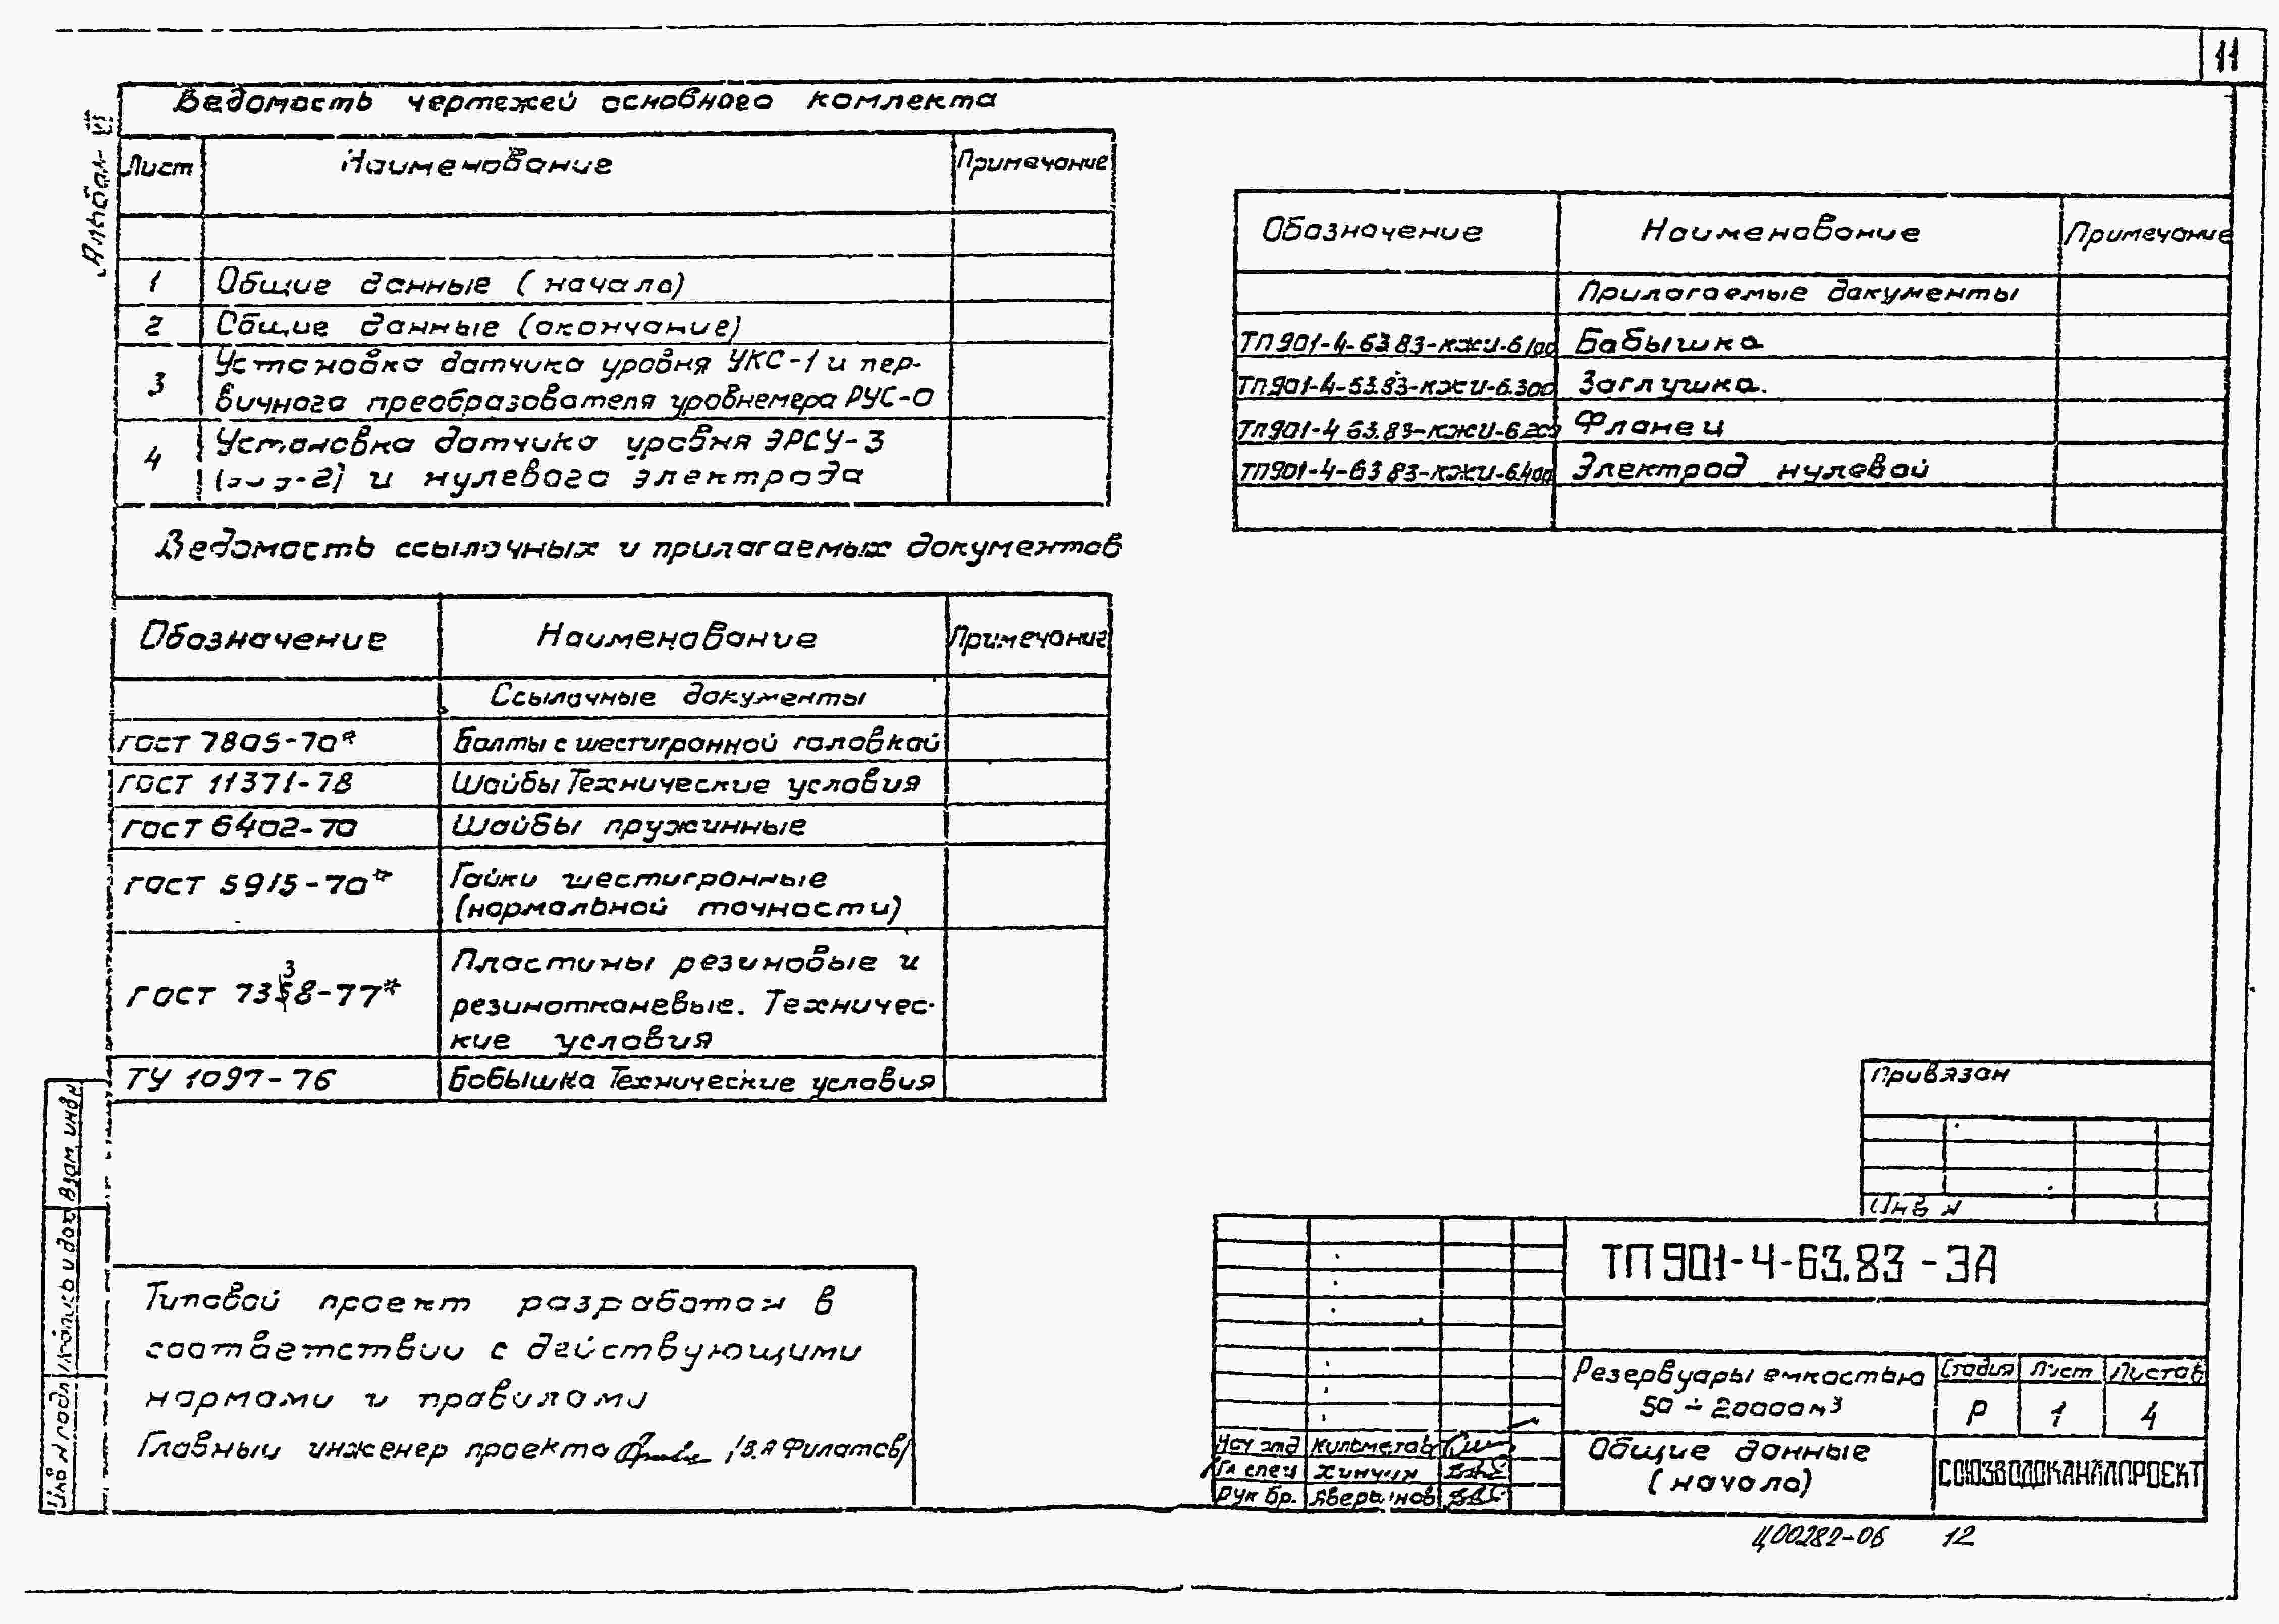 11
Альбом VI
Ведомость чертежей основного комлекта
Лист Наименование Примечание
1 Общие данные (начало)
2 Общие данные (окончание)
3 Установка датчика уровня УКС-1 и пер-
вичного преобразователя уровнемера РУС-О
4 Установка датчика уровня ЭРСУ-3
и нулевого электрода
Ведомость ссылочных и прилагаемых документов
Обозначение Наименование Примечание
Ссылочные документы
ГОСТ 7805-70* Болты с шестигранной головкой
ГОСТ 11371-78 Шайбы Технические условия
ГОСТ 6402-70 Шайбы пружинные
ГОСТ 5915-70* Гайки шестигранные
(нормальной точности)
ГОСТ 7338-77* Пластины резиновые и
резинотканевые. Техничес-
кие условия
ТУ 1097-76 Бобышка Технические условия
Обозначение Наименование Примечание
Прилагаемые документы
ТП901-4-63.83-КЖИ-6.100 Бобышка
ТП901-4-63.83-КЖИ-6.300 Заглушка.
ТП901-4 63.83-КЖИ-6.200 Фланец
ТП901-4-63 83-КЖИ-6.400 Электрод нулевой
Типовой проект разработан в
соответствии с действующими
нормами и правилами
Главный инженер проекта /В.Я Филатов/
Взам инв N
Подпись и дата
Инв N подл
Привязан
Инв N
ТП 901-4-63.83-ЭА
Резервуары емкостью
50 ÷ 20000 м³
Стадия Лист Листов
Р 1 4
Нач отд
Гл спец Хинчин
Рук бр.
Общие данные
(начало)
СОЮЗВОДОКАНАЛПРОЕКТ
Ц00282-06 12